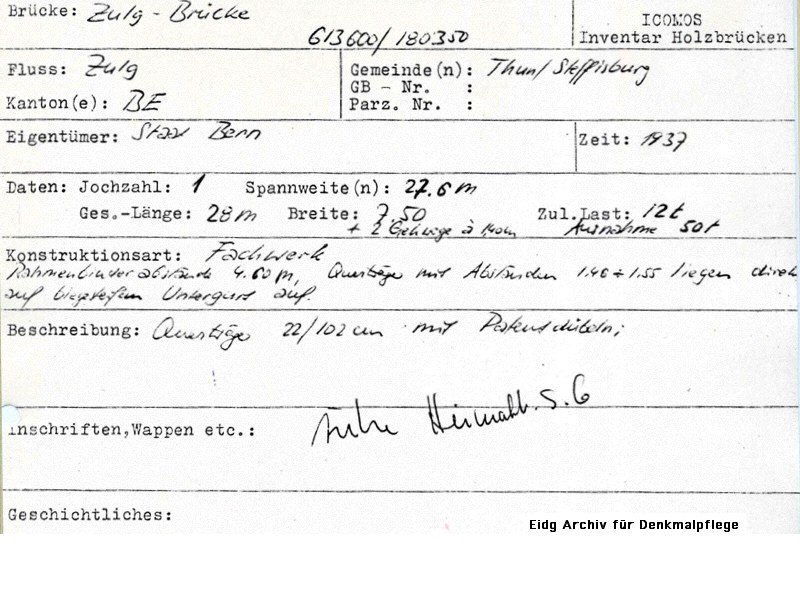 Brücke: Zulg - Brücke
613600/180350
ICOMOS
Inventar Holzbrücken
Fluss: Zulg
Gemeinde(n): Thun/Steffisburg
GB - Nr. :
Kanton(e): BE
Parz. Nr. :
Eigentümer: Staat Bern
Zeit: 1937
Daten: Jochzahl: 1 Spannweite(n): 27.6 m
Ges.-Länge: 28 m Breite: 7.50 Zul.Last: 12t
+ 2 Gehwege à m Ausnahme 50t
Konstruktionsart: Fachwerk
Rahmenbinderabstände 4.60 m, Querträger mit Abständen 1.46 ÷ 1.55 liegen direkt
auf biegesteifem Untergurt auf.
Beschreibung: Querträger 22/102 cm mit Patentdübeln;
siehe Heimatb. S. 6
Inschriften,Wappen etc.:
Geschichtliches:
Eidg Archiv für Denkmalpflege